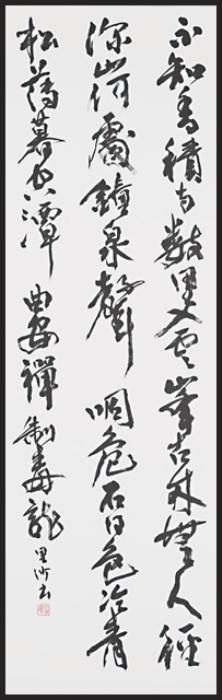 不知香積寺數里入雲峯古木無人徑
深山何處鐘泉聲咽危石日色冷青
松薄暮空潭曲安禪制毒龍